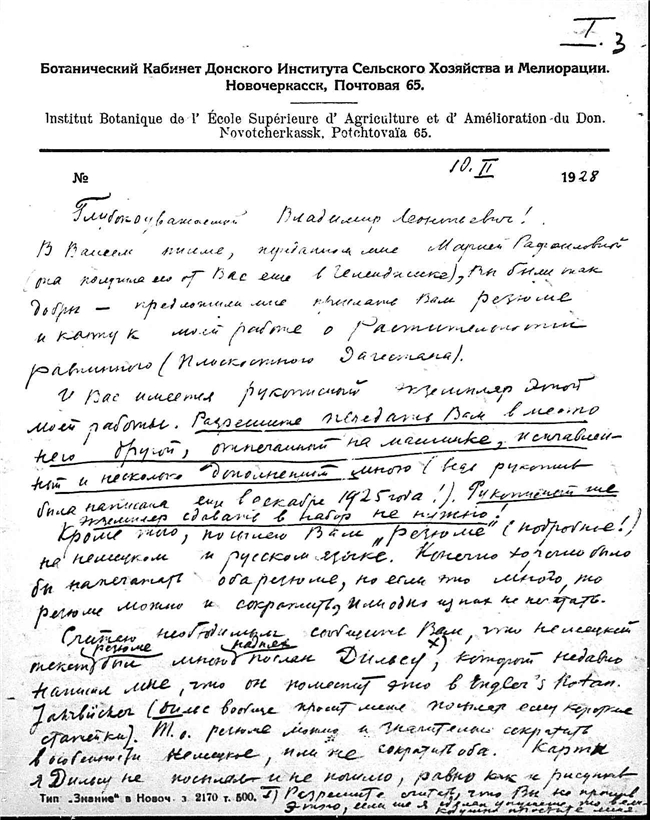 I. 3
Ботанический Кабинет Донского Института Сельского Хозяйства и Мелиорации.
Новочеркасск, Почтовая 65.
Institut Botanique de l' École Supérieure d' Agriculture et d' Amélioration du Don.
Novotcherkassk, Potchtovaïa 65.
№ 10. II 1928
Глубокоуважаемый Владимир Леонтьевич!
В Вашем письме, переданном мне Марией Рафаиловной
(она получила его от Вас еще в Геленджике), Вы были так
добры — предложили мне прислать Вам резюме
и карту к моей работе о растительности
равнинного (Плоскостного Дагестана).
У Вас имеется рукописный экземпляр этой
моей работы. Разрешите передать Вам вместо
него другой, отпечатанный на машинке, исправлен-
ный и несколько дополненный мною (ведь рукопись
была написана еще в декабре 1925 года!). Рукописный же
экземпляр сдавать в набор не нужно!
Кроме того, посылаю Вам „резюме" (подробное!)
на немецком и русском языке. Конечно хорошо было
бы напечатать оба резюме, но если это много, то
резюме можно и сократить, или одно из них не печатать.
Считаю необходимым сообщить Вам, что немецкий
текст резюме был мною послан Дильсу x), который недавно
написал мне, что он поместит это в Engler's Botan.
Jahrbücher (Дильс вообще просит меня посылать ему короткие
статейки). Т. о. резюме можно и значительно сократить
в особенности немецкое, или же сократить оба. Карты
я Дильсу не посылал и не пошлю, равно как и рисунков
x) Разрешите считать, что Вы не против
этого, если же я сделал упущение, то вели-
кодушно простите меня.
Тип. „Знание" в Новоч. з. 2170 т. 500.